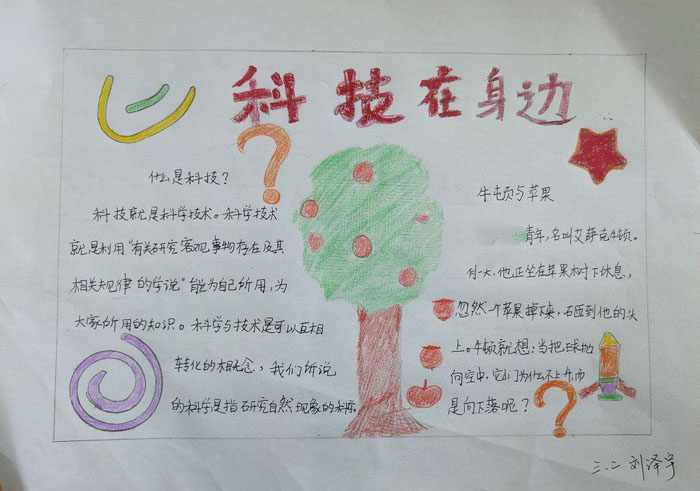 科技在身边
什么是科技？
科技就是科学技术。科学技术
就是利用“有关研究客观事物存在及其
相关规律的学说”能为自己所用，为
大家所用的知识。科学与技术是可以互相
转化的概念，我们所说
的科学是指研究自然现象的本质
牛顿与苹果
青年，名叫艾萨克牛顿。
有一天，他正坐在苹果树下休息，
忽然一个苹果掉下来，砸到他的头
上。牛顿就想：当把球抛
向空中，它们为什么不上升而
是向下落呢？
三.二 刘泽宇